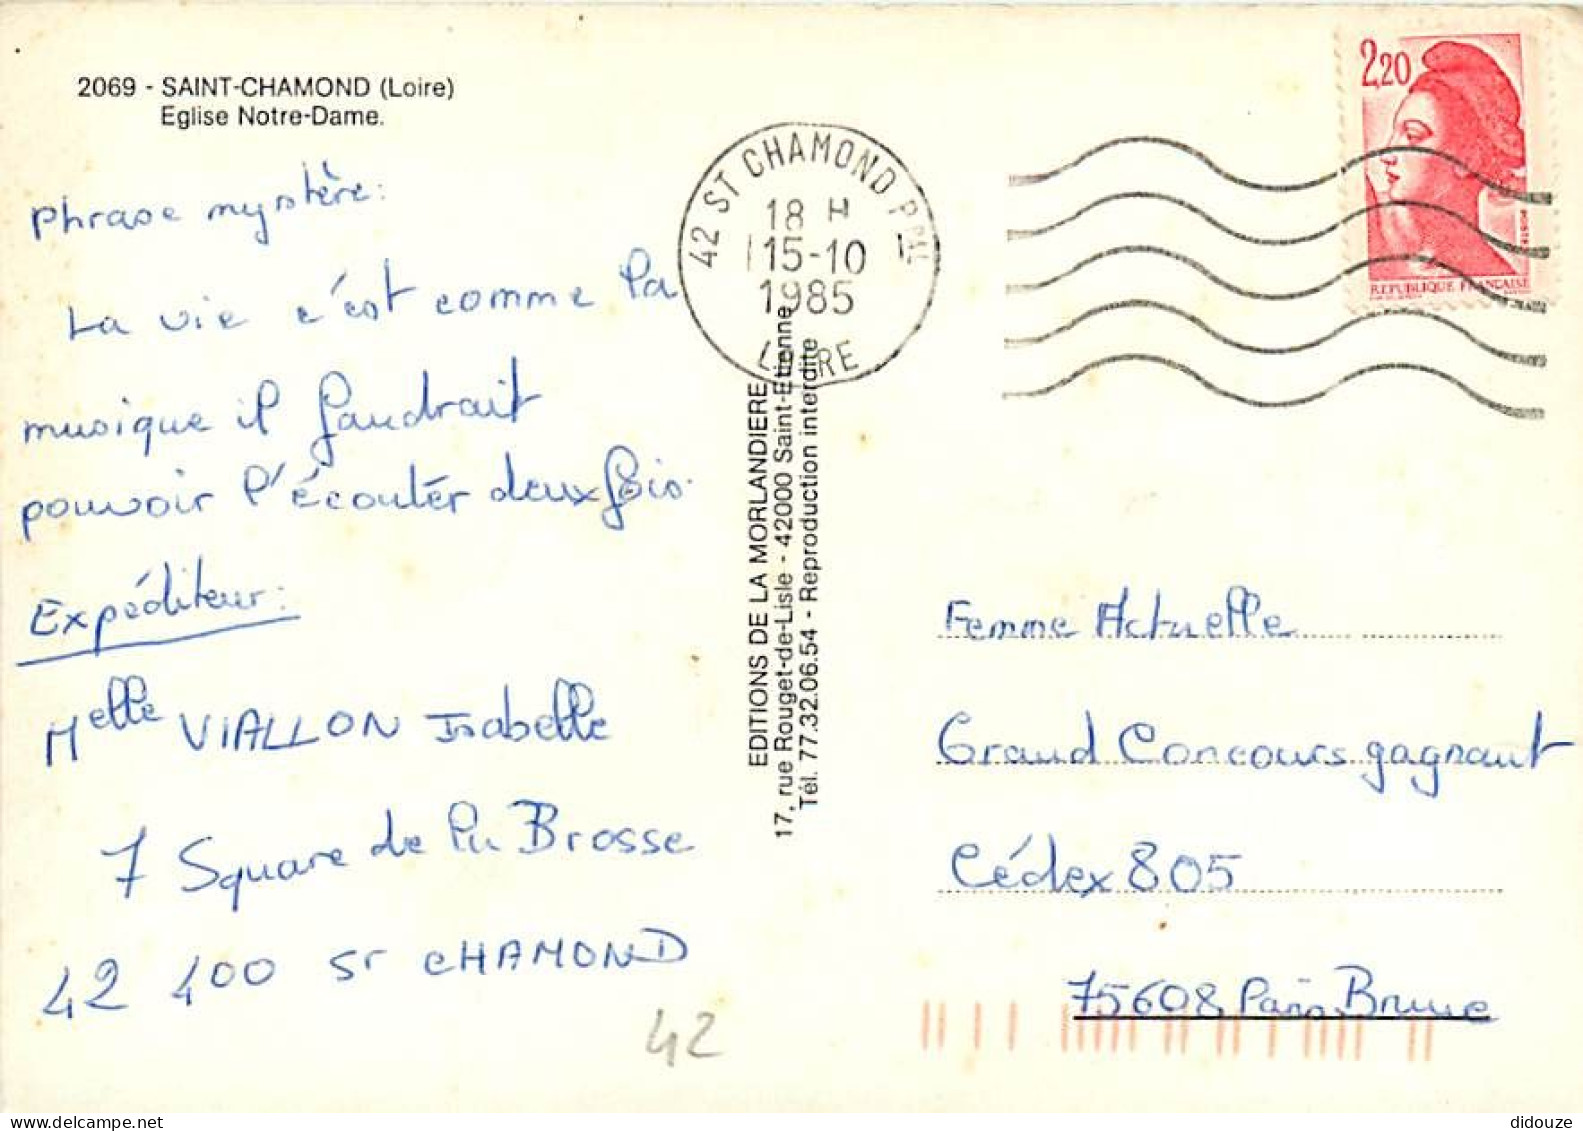 2069 - SAINT-CHAMOND (Loire)
Eglise Notre-Dame.
Phrase mystère:
La vie c'est comme la
musique il faudrait
pouvoir l'écouter deux fois.
Expéditeur:
Melle VIALLON Isabelle
7 Square de Pu Brosse
42 400 St CHAMOND
42
EDITIONS DE LA MORLANDIERE
17, rue Rouget-de-Lisle - 42000 Saint-Etienne
Tél. 77.32.06.54 - Reproduction interdite
42 ST CHAMOND PPAL
18 H
15-10
1985
LOIRE
2,20
POSTES
REPUBLIQUE FRANÇAISE
Femme Actuelle
Grand Concours gagnant
Cédex 805
75608 Paris Brune
didouze